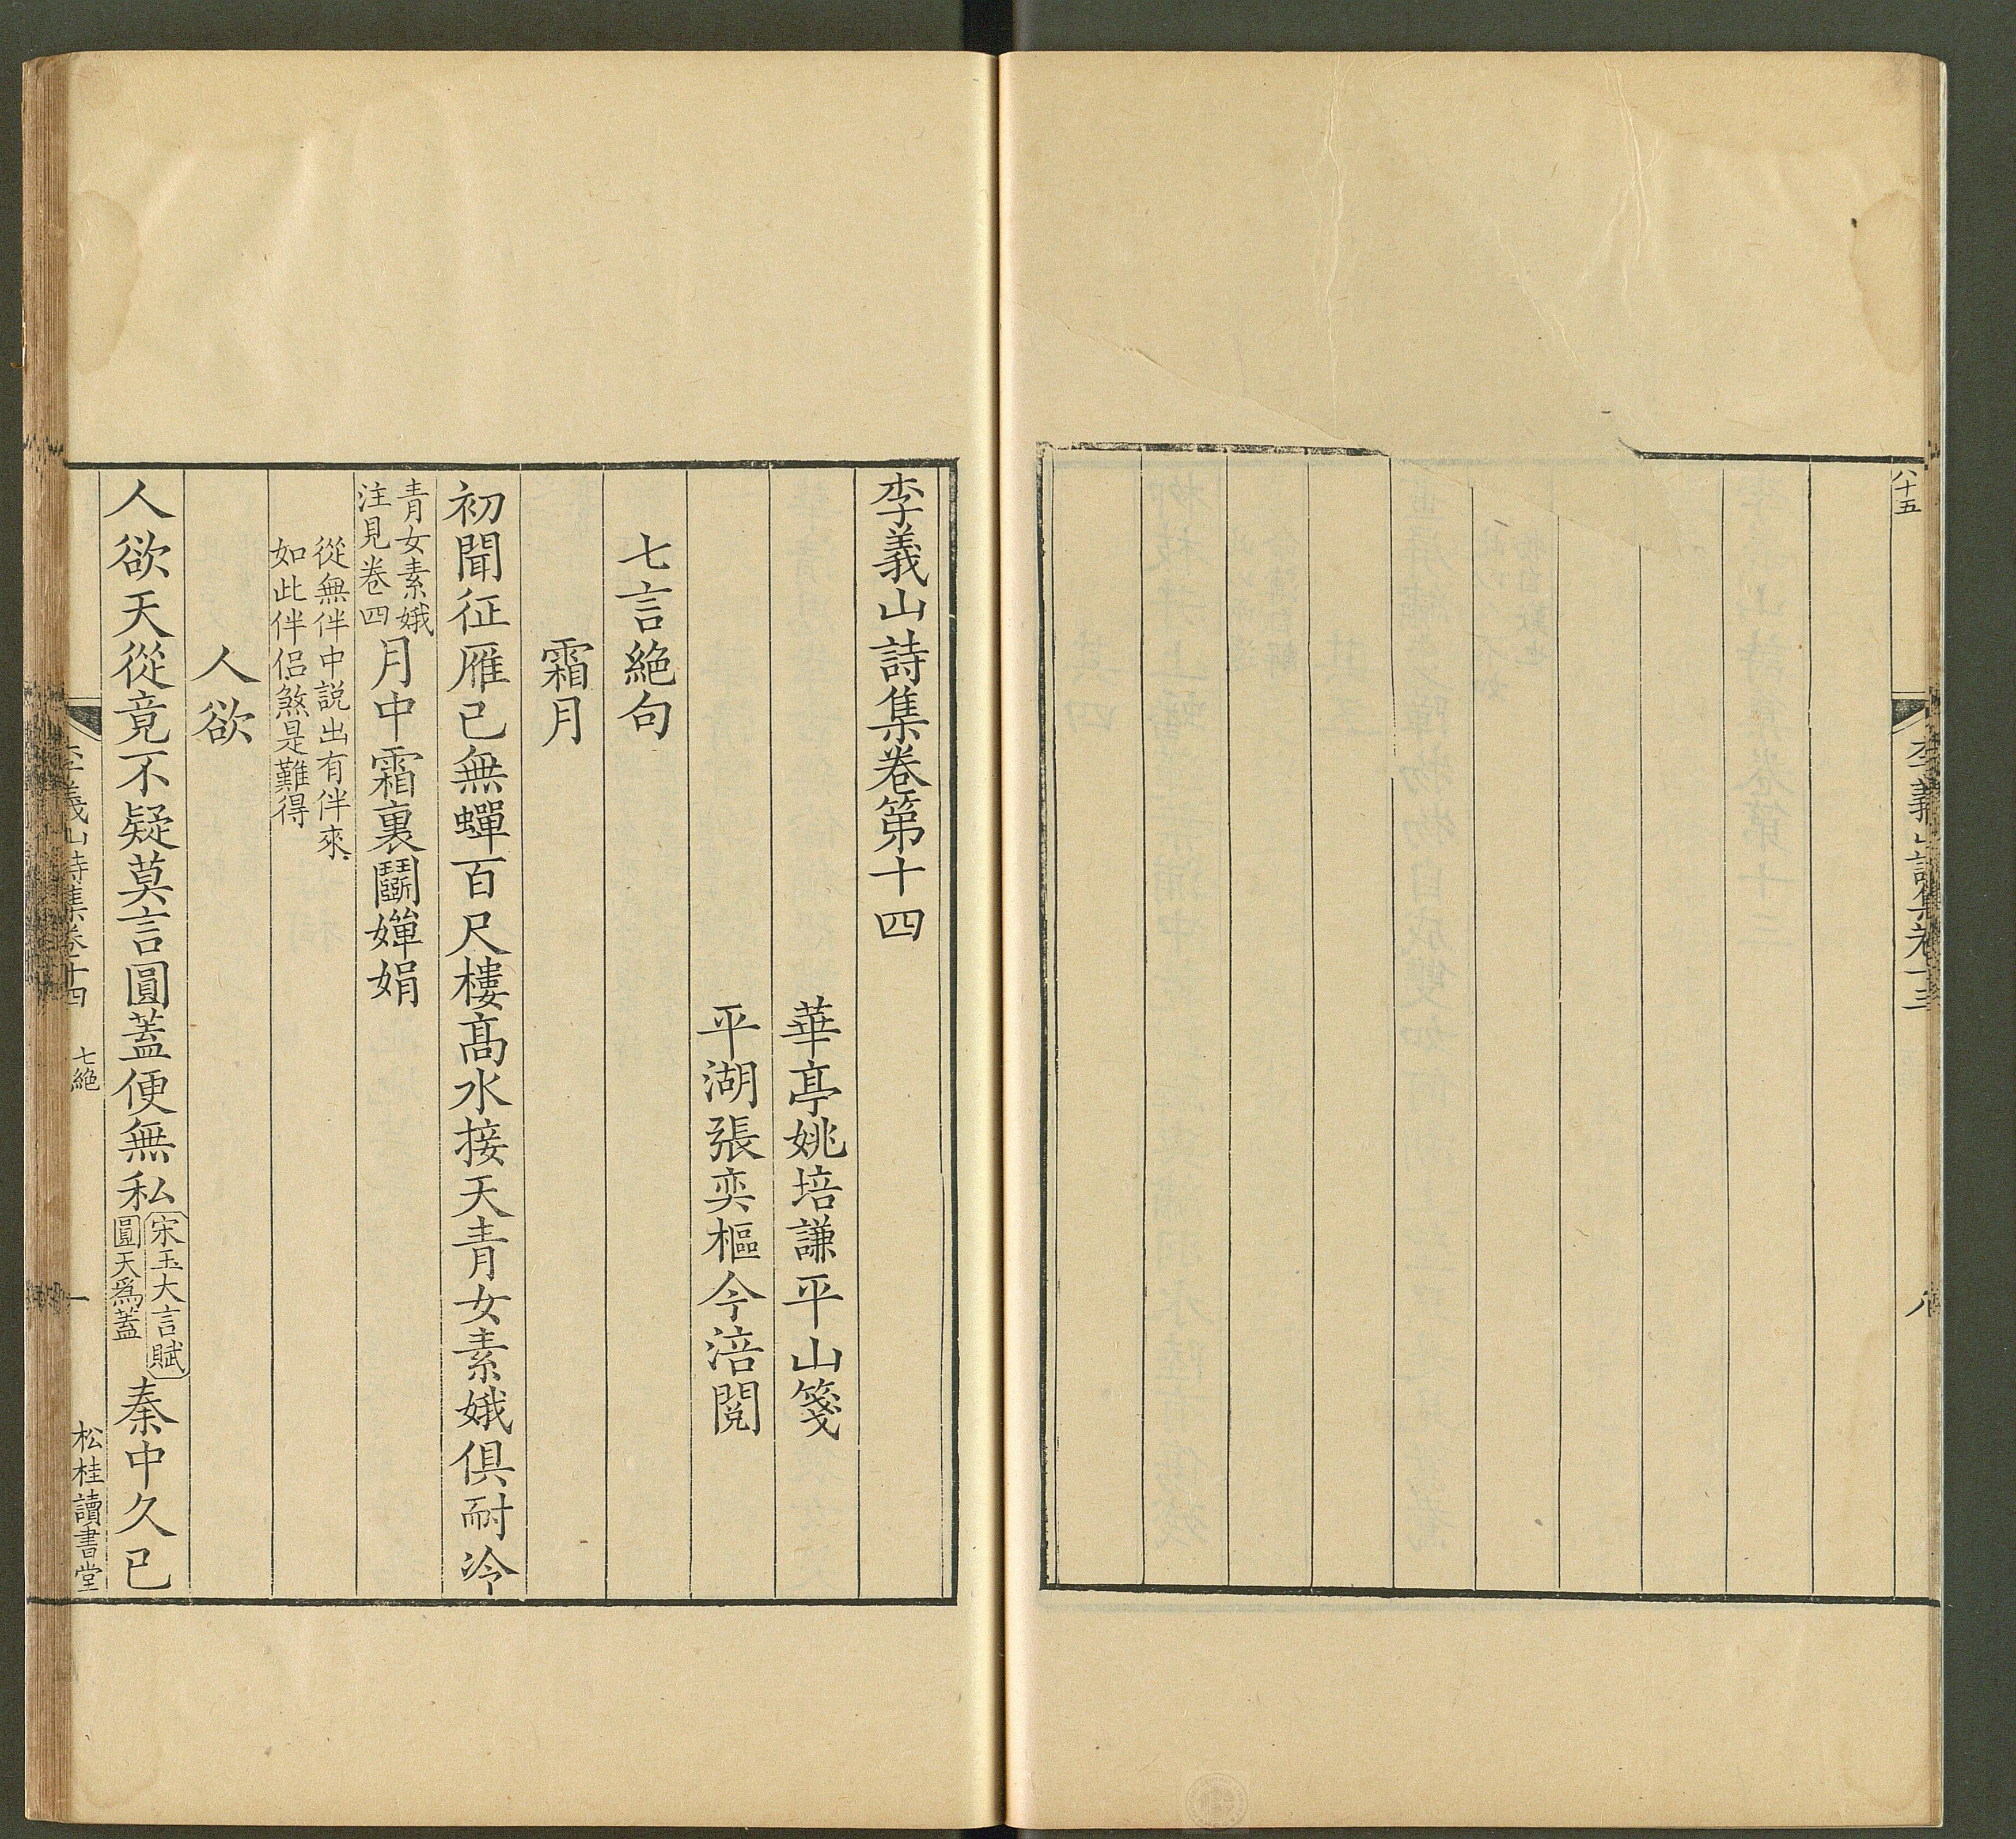 八十五
李義山詩集卷十三
八
李義山詩集卷第十四
華亭姚培謙平山箋
平湖張奕樞今涪閱
七言絶句
霜月
初聞征雁已無蟬百尺樓高水接天青女素娥俱耐冷
青女素娥
注見卷四
月中霜裏鬬嬋娟
從無伴中説出有伴來
如此伴侶煞是難得
人欲
人欲天從竟不疑莫言圓蓋便無私
宋玉大言賦
圓天爲蓋
秦中久已
李義山詩集卷十四
七絶
一
松桂讀書堂